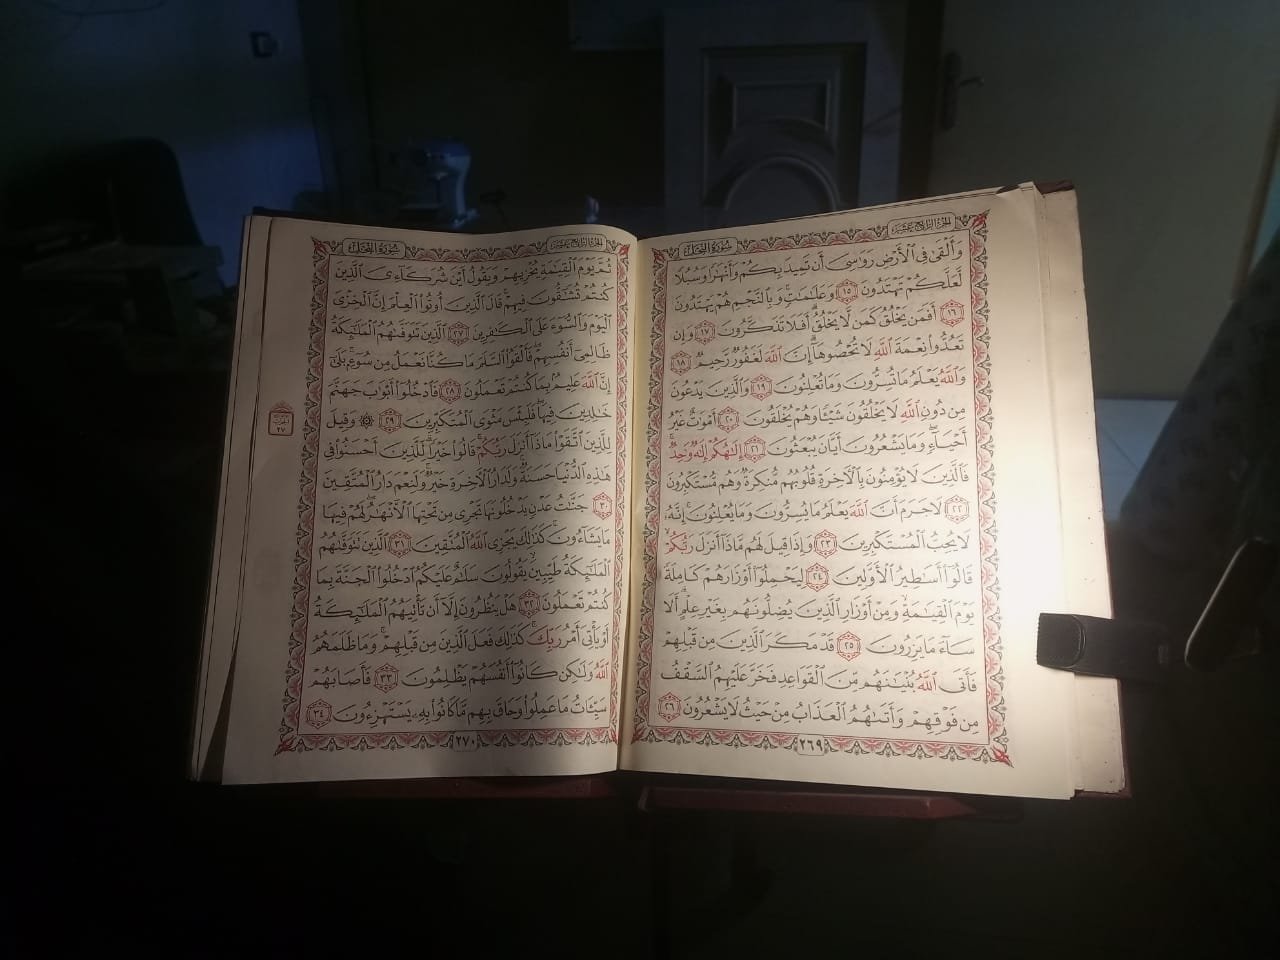 الجزء الرابع عشر
سورة النحل
وَأَلْقَىٰ فِي الْأَرْضِ رَوَاسِيَ أَن تَمِيدَ بِكُمْ وَأَنْهَارًا وَسُبُلًا
لَّعَلَّكُمْ تَهْتَدُونَ ١٥ وَعَلَامَاتٍ وَبِالنَّجْمِ هُمْ يَهْتَدُونَ
١٦ أَفَمَن يَخْلُقُ كَمَن لَّا يَخْلُقُ أَفَلَا تَذَكَّرُونَ ١٧ وَإِن
تَعُدُّوا نِعْمَةَ اللَّهِ لَا تُحْصُوهَا إِنَّ اللَّهَ لَغَفُورٌ رَّحِيمٌ ١٨
وَاللَّهُ يَعْلَمُ مَا تُسِرُّونَ وَمَا تُعْلِنُونَ ١٩ وَالَّذِينَ يَدْعُونَ
مِن دُونِ اللَّهِ لَا يَخْلُقُونَ شَيْئًا وَهُمْ يُخْلَقُونَ ٢٠ أَمْوَاتٌ غَيْرُ
أَحْيَاءٍ وَمَا يَشْعُرُونَ أَيَّانَ يُبْعَثُونَ ٢١ إِلَٰهُكُمْ إِلَٰهٌ وَاحِدٌ
فَالَّذِينَ لَا يُؤْمِنُونَ بِالْآخِرَةِ قُلُوبُهُم مُّنكِرَةٌ وَهُم مُّسْتَكْبِرُونَ
٢٢ لَا جَرَمَ أَنَّ اللَّهَ يَعْلَمُ مَا يُسِرُّونَ وَمَا يُعْلِنُونَ إِنَّهُ
لَا يُحِبُّ الْمُسْتَكْبِرِينَ ٢٣ وَإِذَا قِيلَ لَهُم مَّاذَا أَنزَلَ رَبُّكُمْ
قَالُوا أَسَاطِيرُ الْأَوَّلِينَ ٢٤ لِيَحْمِلُوا أَوْزَارَهُمْ كَامِلَةً
يَوْمَ الْقِيَامَةِ وَمِنْ أَوْزَارِ الَّذِينَ يُضِلُّونَهُم بِغَيْرِ عِلْمٍ أَلَا
سَاءَ مَا يَزِرُونَ ٢٥ قَدْ مَكَرَ الَّذِينَ مِن قَبْلِهِمْ
فَأَتَى اللَّهُ بُنْيَانَهُم مِّنَ الْقَوَاعِدِ فَخَرَّ عَلَيْهِمُ السَّقْفُ
مِن فَوْقِهِمْ وَأَتَاهُمُ الْعَذَابُ مِنْ حَيْثُ لَا يَشْعُرُونَ ٢٦
٢٦٩
الجزء الرابع عشر
سورة النحل
ثُمَّ يَوْمَ الْقِيَامَةِ يُخْزِيهِمْ وَيَقُولُ أَيْنَ شُرَكَاءِيَ الَّذِينَ
كُنتُمْ تُشَاقُّونَ فِيهِمْ قَالَ الَّذِينَ أُوتُوا الْعِلْمَ إِنَّ الْخِزْيَ
الْيَوْمَ وَالسُّوءَ عَلَى الْكَافِرِينَ ٢٧ الَّذِينَ تَتَوَفَّاهُمُ الْمَلَائِكَةُ
ظَالِمِي أَنفُسِهِمْ فَأَلْقَوُا السَّلَمَ مَا كُنَّا نَعْمَلُ مِن سُوءٍ بَلَىٰ
إِنَّ اللَّهَ عَلِيمٌ بِمَا كُنتُمْ تَعْمَلُونَ ٢٨ فَادْخُلُوا أَبْوَابَ جَهَنَّمَ
خَالِدِينَ فِيهَا فَلَبِئْسَ مَثْوَى الْمُتَكَبِّرِينَ ٢٩ ۞ وَقِيلَ
لِلَّذِينَ اتَّقَوْا مَاذَا أَنزَلَ رَبُّكُمْ قَالُوا خَيْرًا لِّلَّذِينَ أَحْسَنُوا فِي
هَٰذِهِ الدُّنْيَا حَسَنَةٌ وَلَدَارُ الْآخِرَةِ خَيْرٌ وَلَنِعْمَ دَارُ الْمُتَّقِينَ
٣٠ جَنَّاتُ عَدْنٍ يَدْخُلُونَهَا تَجْرِي مِن تَحْتِهَا الْأَنْهَارُ لَهُمْ فِيهَا
مَا يَشَاءُونَ كَذَٰلِكَ يَجْزِي اللَّهُ الْمُتَّقِينَ ٣١ الَّذِينَ تَتَوَفَّاهُمُ
الْمَلَائِكَةُ طَيِّبِينَ يَقُولُونَ سَلَامٌ عَلَيْكُمُ ادْخُلُوا الْجَنَّةَ بِمَا
كُنتُمْ تَعْمَلُونَ ٣٢ هَلْ يَنظُرُونَ إِلَّا أَن تَأْتِيَهُمُ الْمَلَائِكَةُ
أَوْ يَأْتِيَ أَمْرُ رَبِّكَ كَذَٰلِكَ فَعَلَ الَّذِينَ مِن قَبْلِهِمْ وَمَا ظَلَمَهُمُ
اللَّهُ وَلَٰكِن كَانُوا أَنفُسَهُمْ يَظْلِمُونَ ٣٣ فَأَصَابَهُمْ
سَيِّئَاتُ مَا عَمِلُوا وَحَاقَ بِهِم مَّا كَانُوا بِهِ يَسْتَهْزِءُونَ ٣٤
٢٧٠
الحزب
٢٧